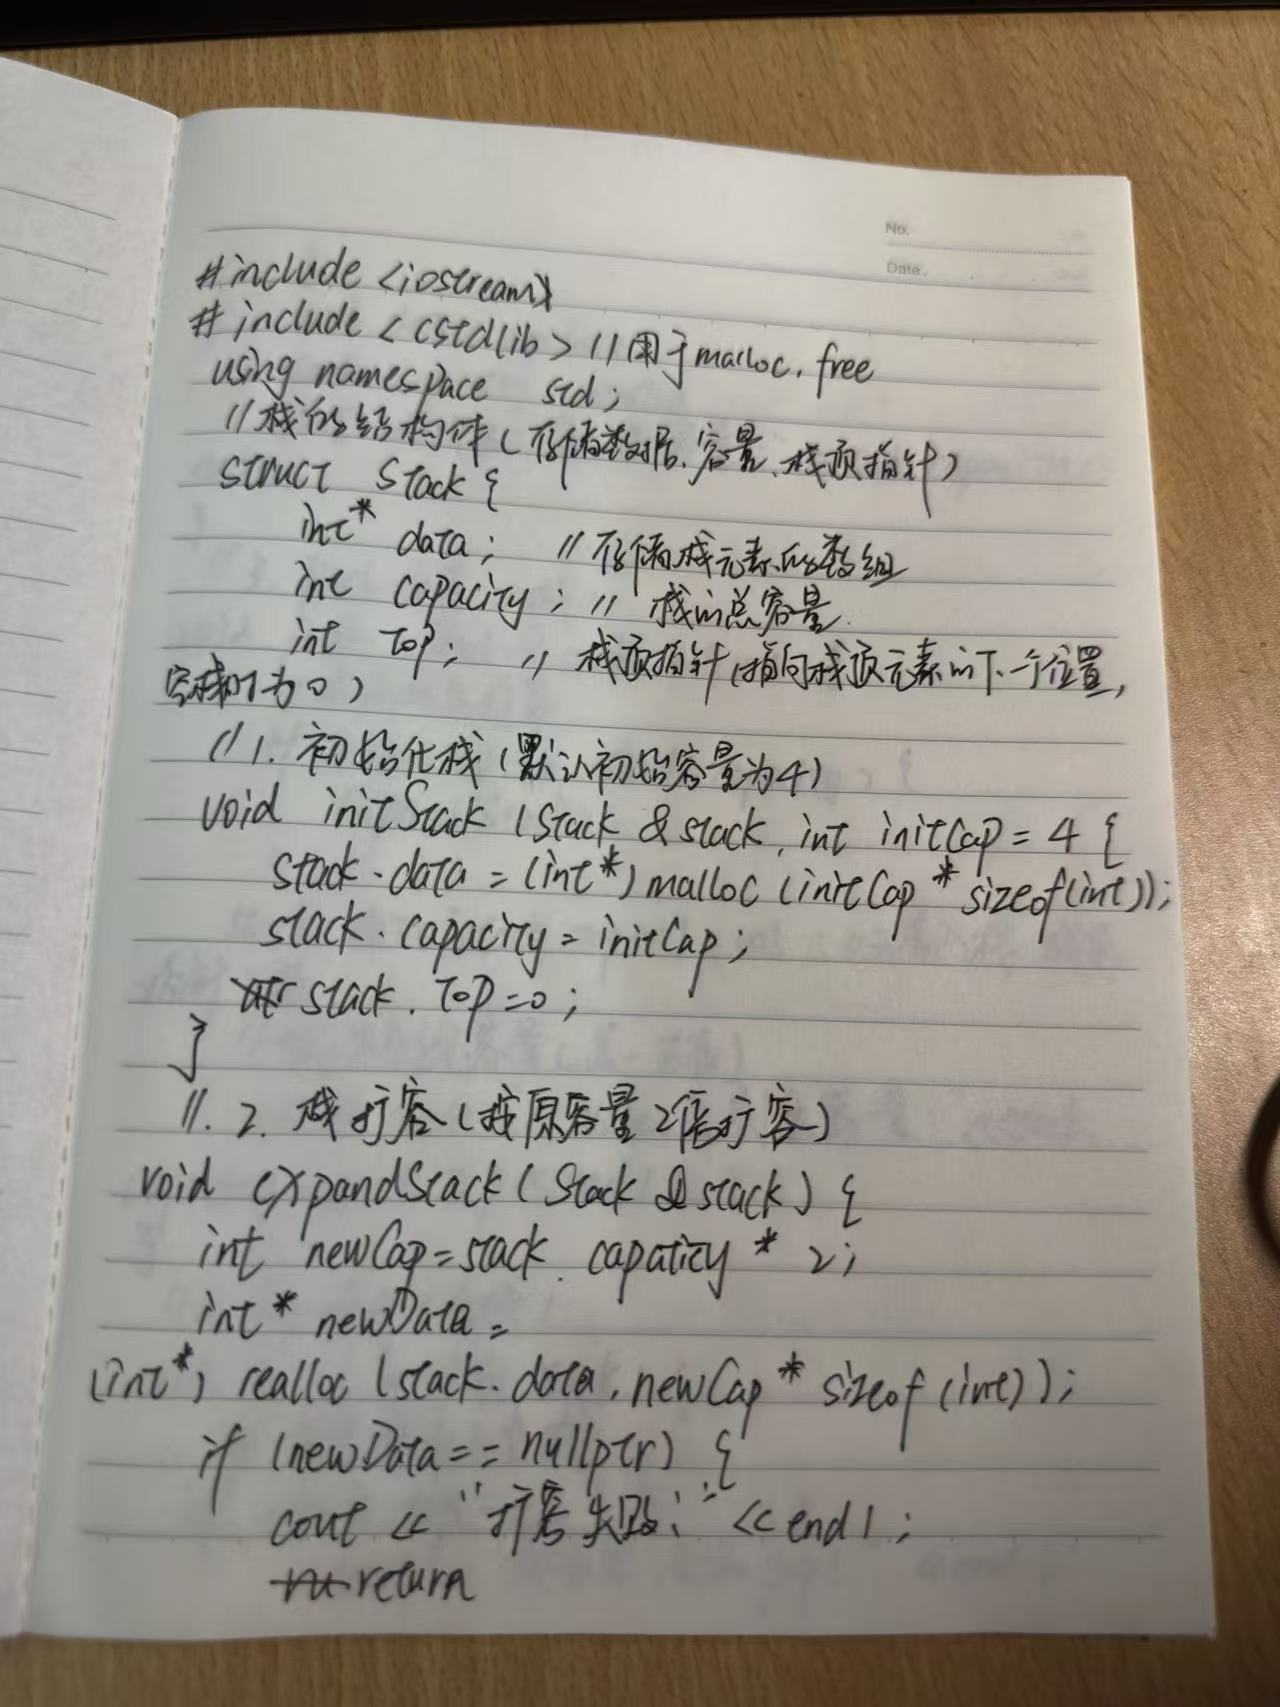 No.
Date.
#include <iostream>
#include <cstdlib> //用于malloc、free
using namespace std;
//栈的结构体(存储数据、容量、栈顶指针)
struct Stack {
int* data; //存储栈元素的数组
int capacity; // 栈的总容量
int top; // 栈顶指针(指向栈顶元素的下一个位置,
空栈时为0)
// 1. 初始化栈(默认初始容量为4)
void initStack (Stack & stack, int initCap = 4 {
stack.data = (int*) malloc (initCap * sizeof(int));
stack.capacity = initCap;
stack.top = 0;
}
//. 2. 栈扩容(按原容量2倍扩容)
void expandStack (Stack & stack) {
int newCap = stack.capaticy * 2;
int* newData =
(int*) realloc (stack.data, newCap * sizeof (int));
if (newData == nullptr) {
cout << "扩容失败!" << endl;
return